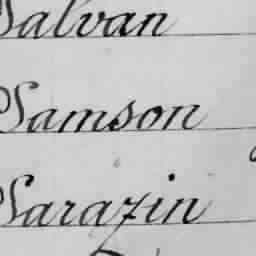 Salvan
Samson
Sarazin